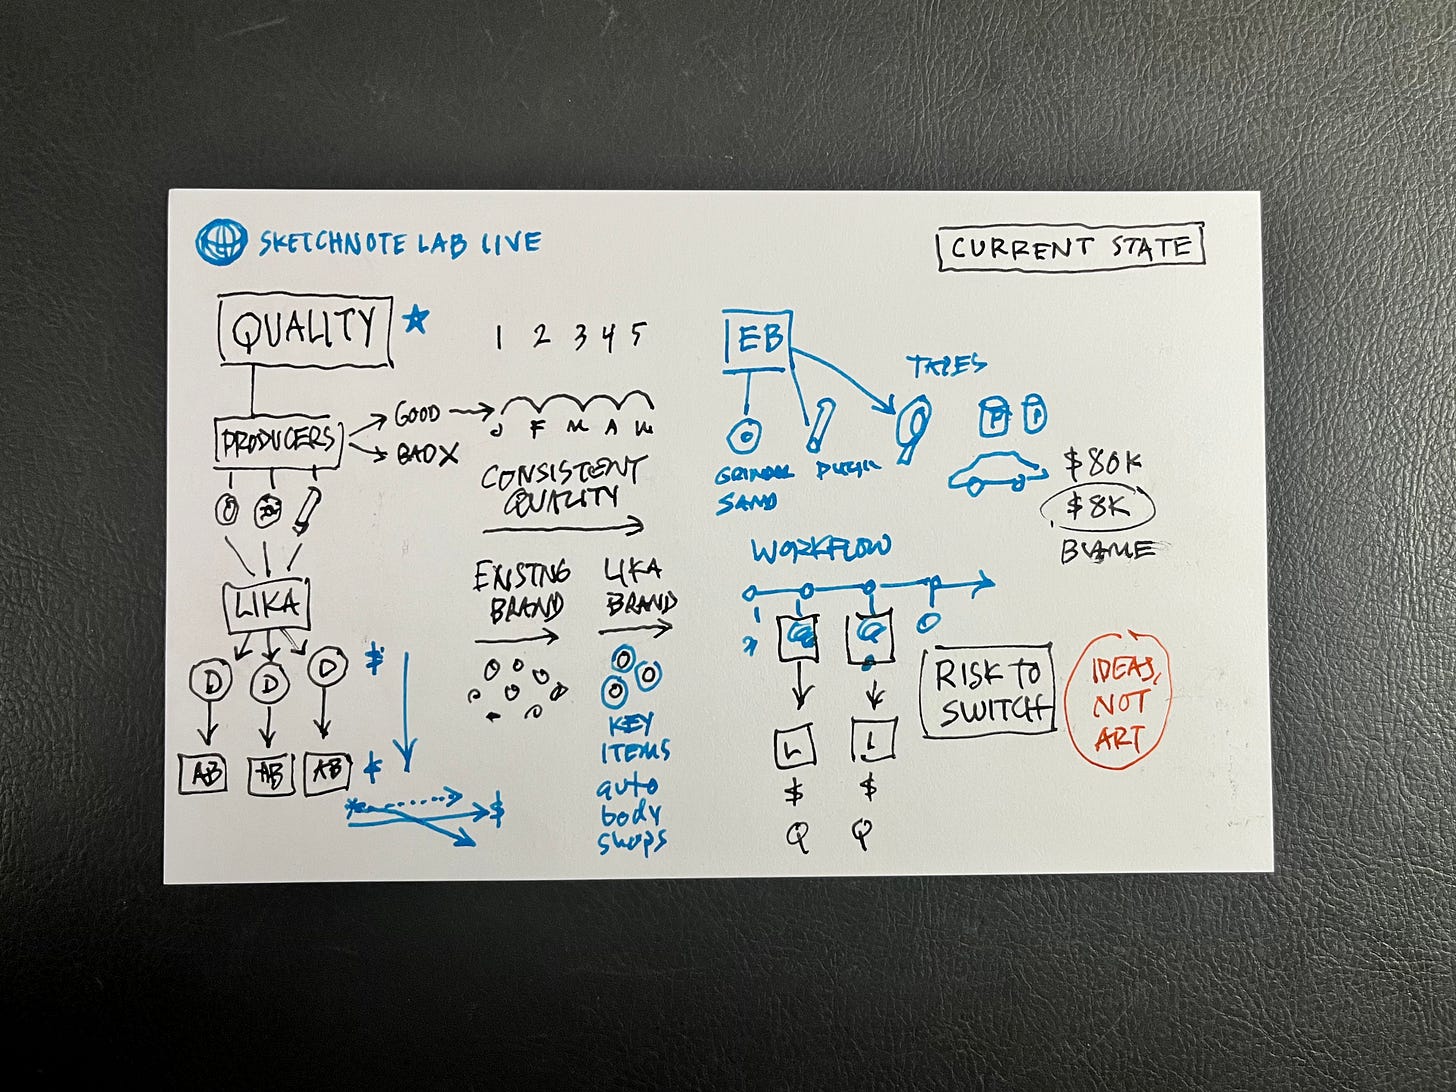 SKETCHNOTE LAB LIVE
CURRENT STATE
QUALITY
1 2 3 4 5
PRODUCERS
GOOD
BAD X
J F M A M
CONSISTENT
QUALITY
LIKA
D D D
$
AB AB AB
$
EXISTNG
BRAND
LIKA
BRAND
KEY
ITEMS
auto
body
shops
EB
TAPES
P P
GRINDER
SAND
$80K
$8K
BLAME
WORKFLOW
L L
$ $
Q Q
RISK TO
SWITCH
IDEAS,
NOT
ART